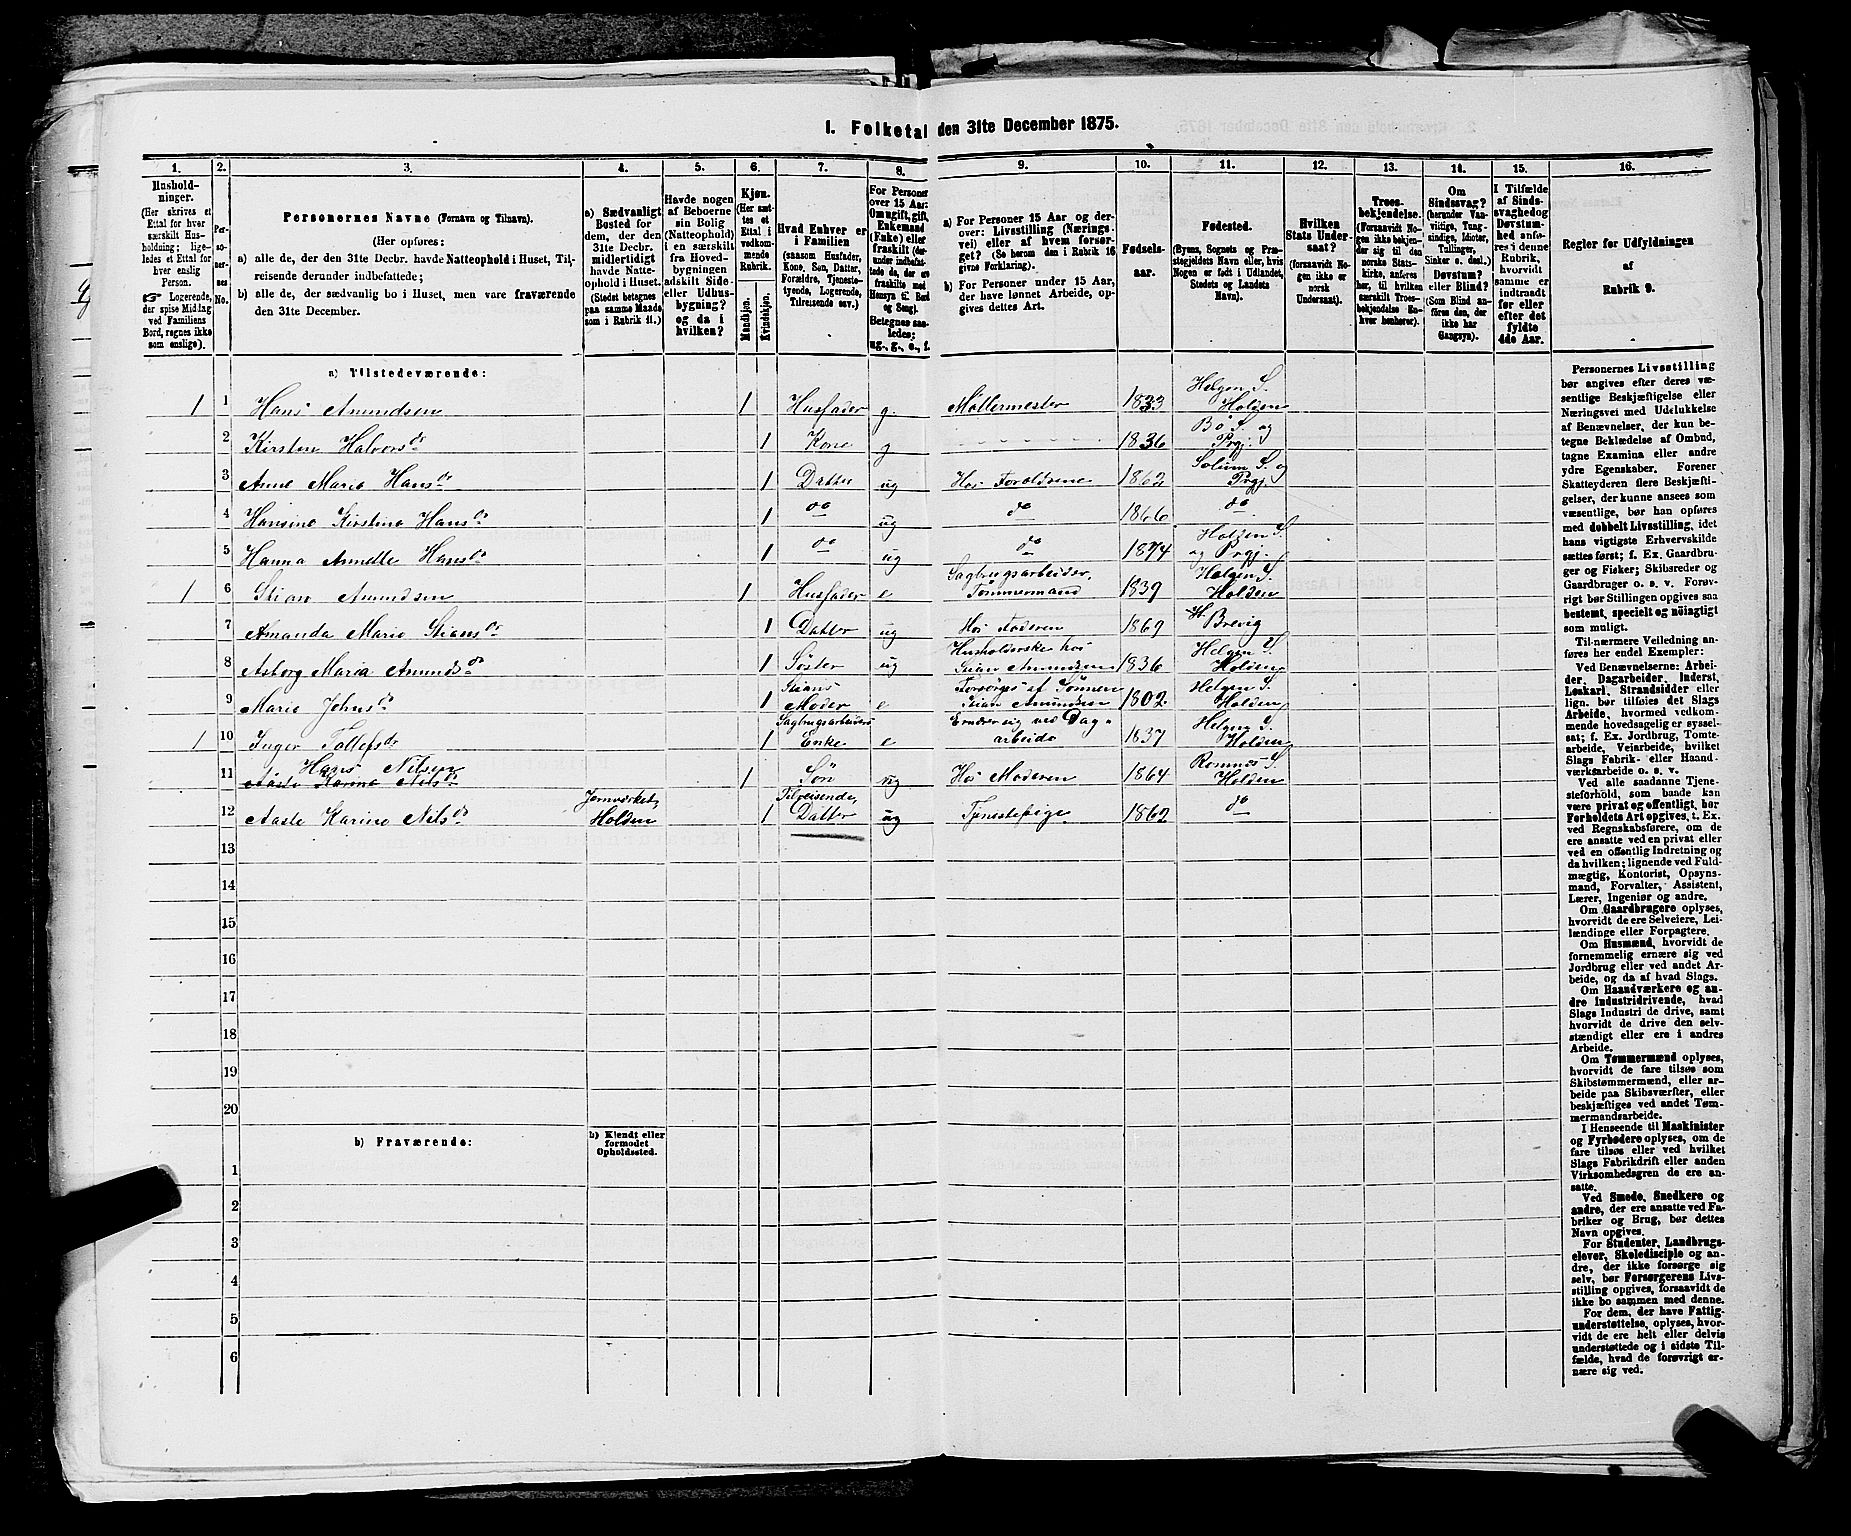 1. Folketal den 31te December 1875.
1. 2. 3. 4. 5. 6. 7. 8. 9. 10. 11. 12. 13. 14. 15. 16.
Husholdninger.
(Her skrives et
Ettal for hver
særskilt Husholdning; ligeledes et Ettal for
hver enslig
Person.
Logerende,
der spise Middag
ved Familiens
Bord, regnes ikke
som enslige).
Personernes No.
Personernes Navne (Fornavn og Tilnavn).
(Her opføres:
a) alle de, der den 31te Decbr. havde Natteophold i Huset, Tilreisende derunder indbefattede;
b) alle de, der sædvanlig bo i Huset, men vare fraværende
den 31te December.
a) Sædvanligt
Bosted for
dem, der den
31te Decbr.
midlertidigt
havde Natteophold i Huset.
(Stedet betegnes
paa samme Maade
som i Rubrik 11.)
Havde nogen
af Beboerne
sin Bolig
(Natteophold)
i en særskilt
fra Hovedbygningen
adskilt Side- eller Udhusbygning?
og da i
hvilken?
Kjøn.
(Her sættes et
Ettal i
vedkommende
Rubrik.
Mandkjøn.
Kvindekjøn.
Hvad Enhver er
i Familien
(saasom Husfader,
Kone, Søn, Datter,
Forældre, Tjenestetyende, Logerende,
Tilreisende osv.)
For Personer
over 15 Aar:
Om ugift, gift,
Enkemand
(Enke) eller
fraskilt
Betegnes saaledes:
ug., g., e., f.
a) For Personer 15 Aar og derover: Livsstilling (Næringsvei) eller af hvem forsørget? (Se herom den i Rubrik 16
givne Forklaring).
b) For Personer under 15 Aar,
der have lønnet Arbeide, opgives dettes Art.
Fødselsaar.
Fødested.
(Byens, Sognets og Præstegjeldets Navn eller, hvis
Nogen er født i Udlandet,
Stedets og Landets
Navn).
Hvilken
Stats Undersaat?
(forsaavidt Nogen ikke er
norsk
Undersaat).
Troesbekjendelse.
(Forsaavidt Nogen ikke bekjender sig til den
norske Statskirke, anføres
her, til hvilken
særskilt Troesbekjendelse Enhver henhører).
Om
Sindssvag?
(herunder Vanvittige, Tungsindige, Idioter,
Tullinger,
Sinker o. desl.).
Døvstum?
eller Blind?
(Som Blind anføres den, der
ikke har
Gangsyn).
I Tilfælde
af Sindssvaghed og
Døvstumhed anføres i denne
Rubrik,
hvorvidt
samme er
indtraadt
før eller
efter det
fyldte
4de Aar.
Regler for Udfyldningen
af
Rubrik 9.
a) Tilstedeværende:
1 1 Hans Amundsen 1 Husfader g. Møllermester 1833 Helgen S. Holden
2 Kirsten Halvorsdr 1 Kone g 1836 Bø S. og Prgj.
3 Anne Marie Hansdr 1 Datter ug Hos Forældrene 1862 Solum S. og Prgj.
4 Hansine Kirstine Hansdr 1 do ug do 1866. do
5 Hanna Annette Hansdr 1 do ug do 1874 Holden S. og Prgj.
1 6 Stian Amundsen 1 Husfader e Sagbrugsarbeider, Tømmermand 1839 Helgen S. Holden
7 Amanda Marie Stiansdr 1 Datter ug Hos Faderen 1869 Brevig
8 Asborg Maria Amundsdr 1 Søster ug Husholderske hos Stian Amundsen 1836 Helgen S. Holden
9 Marie Johnsdr 1 Stians Moder e Forsørges af Sønnen Stian Amundsen 1802 Helgen S. Holden
1 10 Inger Tollefsdr 1 Sagbrugsarbeiders Enke e Ernærer sig ved Dagarbeide 1837 Helgen S. Holden
11 Hans Nilsen 1 Søn ug Hos Moderen 1864 Romnes S. Holden
Aaste Karine Nilsdr
12 Aaste Karine Nilsdr Jernværket, Holden 1 Tilreisende, Datter ug Tjenestepige 1862 do
13
14
15
16
17
18
19
20
b) Fraværende:
b) Kjendt eller
formodet
Opholdssted.
1
2
3
4
5
6
Personernes Livsstilling
bør angives efter deres væsentlige Beskjæftigelse eller
Næringsvei med Udelukkelse
af Benævnelser, der kun betegne Beklædelse af Ombud,
tagne Examina eller andre
ydre Egenskaber. Forener
Skatteyderen flere Beskjæftigelser, der kunne ansees som
væsentlige, bør han opføres
med dobbelt Livsstilling, idet
hans vigtigste Erhvervskilde
sættes først; f. Ex. Gaardbruger og Fisker; Skibsreder og
Gaardbruger o. s. v. Forøvrigt bør Stillingen opgives saa
bestemt, specielt og nøiagtigt
som muligt.
Til nærmere Veiledning anføres her endel Exempler:
Ved Benævnelserne: Arbeider, Dagarbeider, Inderst,
Løskarl, Strandsidder eller
lign. bør tilføies det Slags
Arbeide, hvormed vedkommende hovedsagelig er sysselsat; f. Ex. Jordbrug, Tomtearbeide, Veiarbeide, hvilket
Slags Fabrik- eller Haandværksarbeide o. s. v.
Ved alle saadanne Tjenesteforhold, som baade kan
være privat og offentligt, bør
Forholdets Art opgives, t. Ex.
ved Regnskabsførere, om de
ere ansatte ved en privat eller
ved en offentlig Indretning og
da hvilken; lignende ved Fuldmægtig, Kontorist, Opsynsmand, Forvalter, Assistent,
Lærer, Ingeniør og andre.
Om Gaardbrugere oplyses,
hvorvidt de ere Selveiere, Leilændinge eller Forpagtere.
Om Husmænd, hvorvidt de
fornemmelig ernære sig ved
Jordbrug eller ved andet Arbeide, og da af hvad Slags.
Om Haandværkere og andre Industridrivende, hvad
Slags Industri de drive, samt
hvorvidt de drive den selvstændigt eller ere i andres
Arbeide.
Om Tømmermænd oplyses,
hvorvidt de fare tilsøs som
Skibstømmermænd, eller arbeide paa Skibsværfter, eller
beskjæftiges ved andet Tømmermandsarbeide.
I Henseende til Maskinister
og Fyrbødere oplyses, om de
fare tilsøs eller ved hvilket
Slags Fabrikdrift eller anden
Virksomhedsgren de ere ansatte.
Ved Smede, Snedkere og
andre, der ere ansatte ved Fabriker og Brug, bør dettes
Navn opgives.
For Studenter, Landbrugselever, Skoledisciple og andre, der ikke forsørge sig
selv, bør Forsørgerens Livsstilling opgives, forsaavidt de
ikke bo sammen med denne.
For dem, der have Fattigunderstøttelse, oplyses, hvorvidt de ere helt eller delvis
understøttede og i sidste Tilfælde, hvad de forøvrigt ernære sig ved.